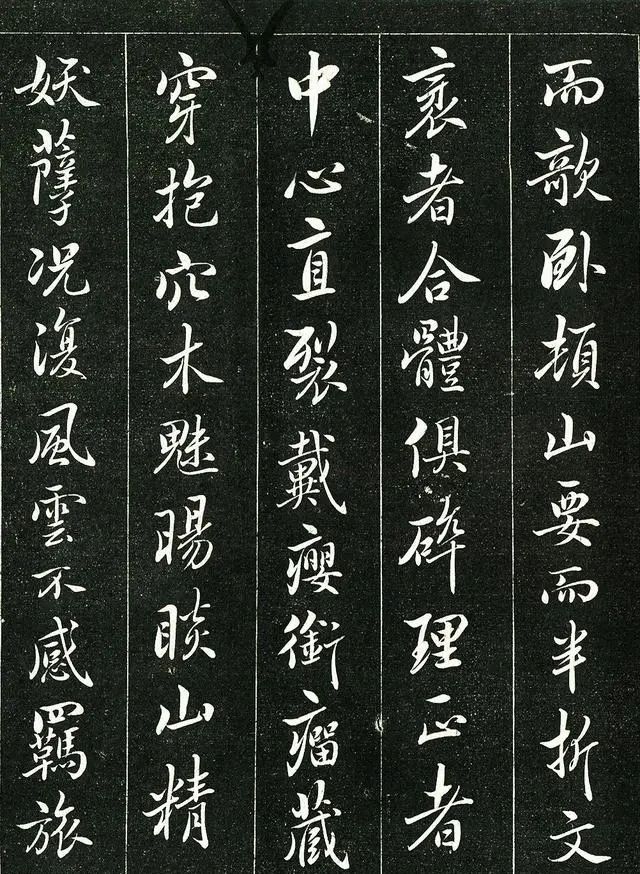 而欹臥頓山要而半折文
衺者合體俱碎理正者
中心直裂戴癭銜瘤藏
穿抱穴木魅睗睒山精
妖孽况復風雲不感羈旅